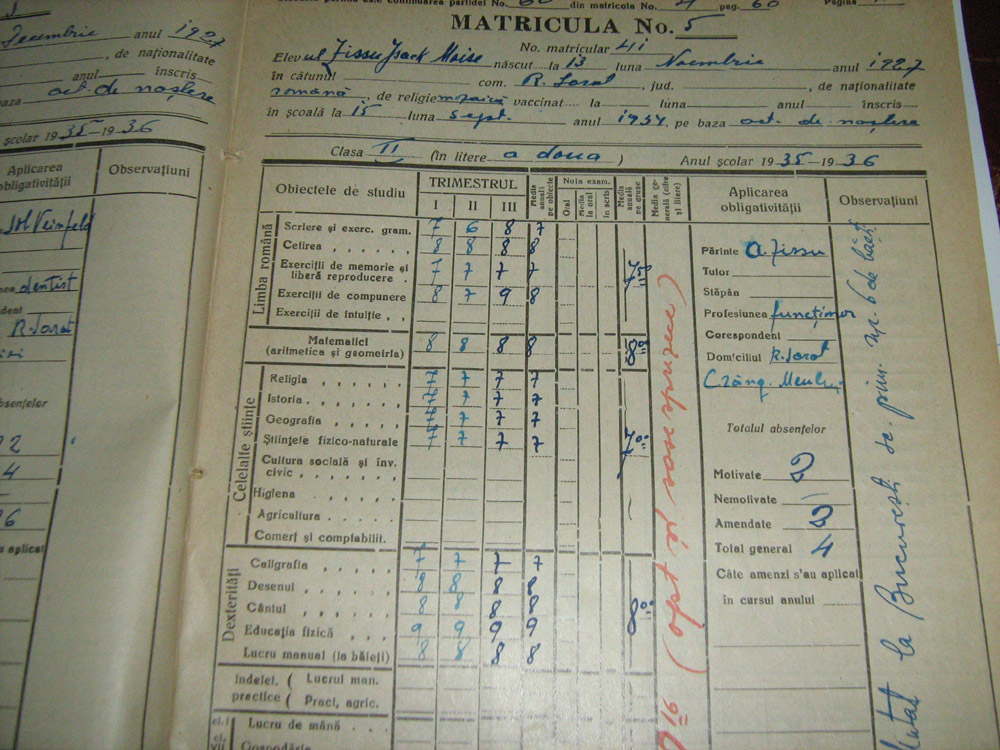 din matricola No. 4 pag. 60
Pagina
MATRICULA No. 5
No. matricular 41
Elevul Zissu Isack Moise născut la 13 luna Noembrie anul 1927
în cătunul com. R. Sarat, jud. , de naționalitate
română, de religie mozaică vaccinat la luna anul înscris
în școală la 15 luna Sept. anul 1934, pe baza act. de naștere
Clasa II (în litere a doua ) Anul școlar 1935–1936
Obiectele de studiu
TRIMESTRUL
I II III
Media anuală pe obiecte
Nota exam.
Oral
Media la oral
în scris
Media anuală pe grupe
Media generală (cifre și litere)
Aplicarea obligativității
Observațiuni
Limba română
Scriere și exerc. gram. 7 6 8 7
Cetirea 8 8 8 8
Exerciții de memorie și liberă reproducere 7 7 7 7
Exerciții de compunere 8 7 9 8
Exerciții de intuiție
Matematici
(aritmetica și geometria) 8 8 8 8 8.00
Celelalte științe
Religia 7 7 7 7
Istoria 7 7 7 7
Geografia 7 7 7 7
Științele fizico-naturale 7 7 7 7
7.00
Cultura socială și înv. civic
Higiena
Agricultura
Comerț și comptabilit.
Dexterități
Caligrafia 7 7 7 7
Desenul 8 8 8 8
Cântul 8 8 8 8
Educația fizică 9 9 9 9
Lucru manual (la băieți) 8 8 8 8
8.00
Îndelet. practice
Lucrul man.
Pract. agric.
Lucru de mână
Gospodărie
(opt și șasesprezece)
Părinte A. Zissu
Tutor
Stăpân
Profesiunea funcționar
Corespondent
Domiciliul R. Sarat
Crâng. Meului
Totalul absențelor
Motivate 2
Nemotivate
Amendate 2
Total general 4
Câte amenzi s'au aplicat
în cursul anului
la București sc. prim. nr. 6 de băeți
Decembrie anul 1927
, de naționalitate
anul înscris
baza act. de naștere
școlar 1935–1936
Aplicarea obligativității
Observațiuni
dentist
R. Sarat
absențelor
4
aplicat